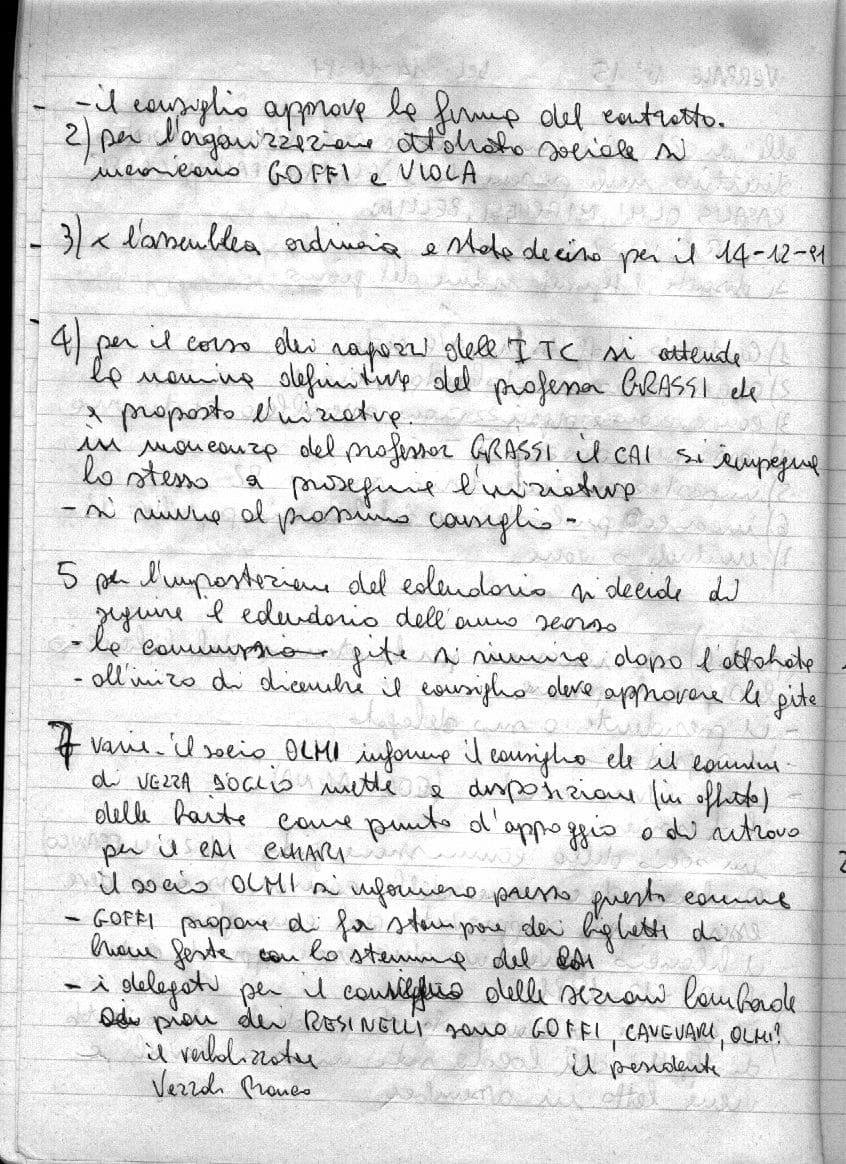 - il consiglio approva la firma del contratto.
2) per l'organizzazione ottobrata sociale si
incaricano GOFFI e VIOLA
3) x l'assemblea ordinaria e stato deciso per il 14-12-91
4) per il corso dei ragazzi dell'ITC si attende
la nomina definitiva del professor GRASSI che
a proposto l'iniziativa.
in mancanza del professor GRASSI il CAI si impegna
lo stesso a proseguire l'iniziativa
- si rinvia al prossimo consiglio -
5 per l'impostazione del calendario si decide di
seguire il calendario dell'anno scorso
- la commissione gite si riunirà dopo l'ottobrata
- all'inizo di dicembre il consiglio deve approvare le gite
7 varie - il socio OLMI informa il consiglio che il comune
di VEZZA D'OGLIO mette a disposizione (in affitto)
delle baite come punto d'appoggio o di ritrovo
per il CAI CHIARI
il socio OLMI si informerà presso questo comune
- GOFFI propone di far stampare dei biglietti di
buone feste con lo stemma del CAI
- i delegati per il consiglio delle sezioni lombarde
piani dei RESINELLI sono GOFFI, OLMI?
il verbalizzatore
il presidente